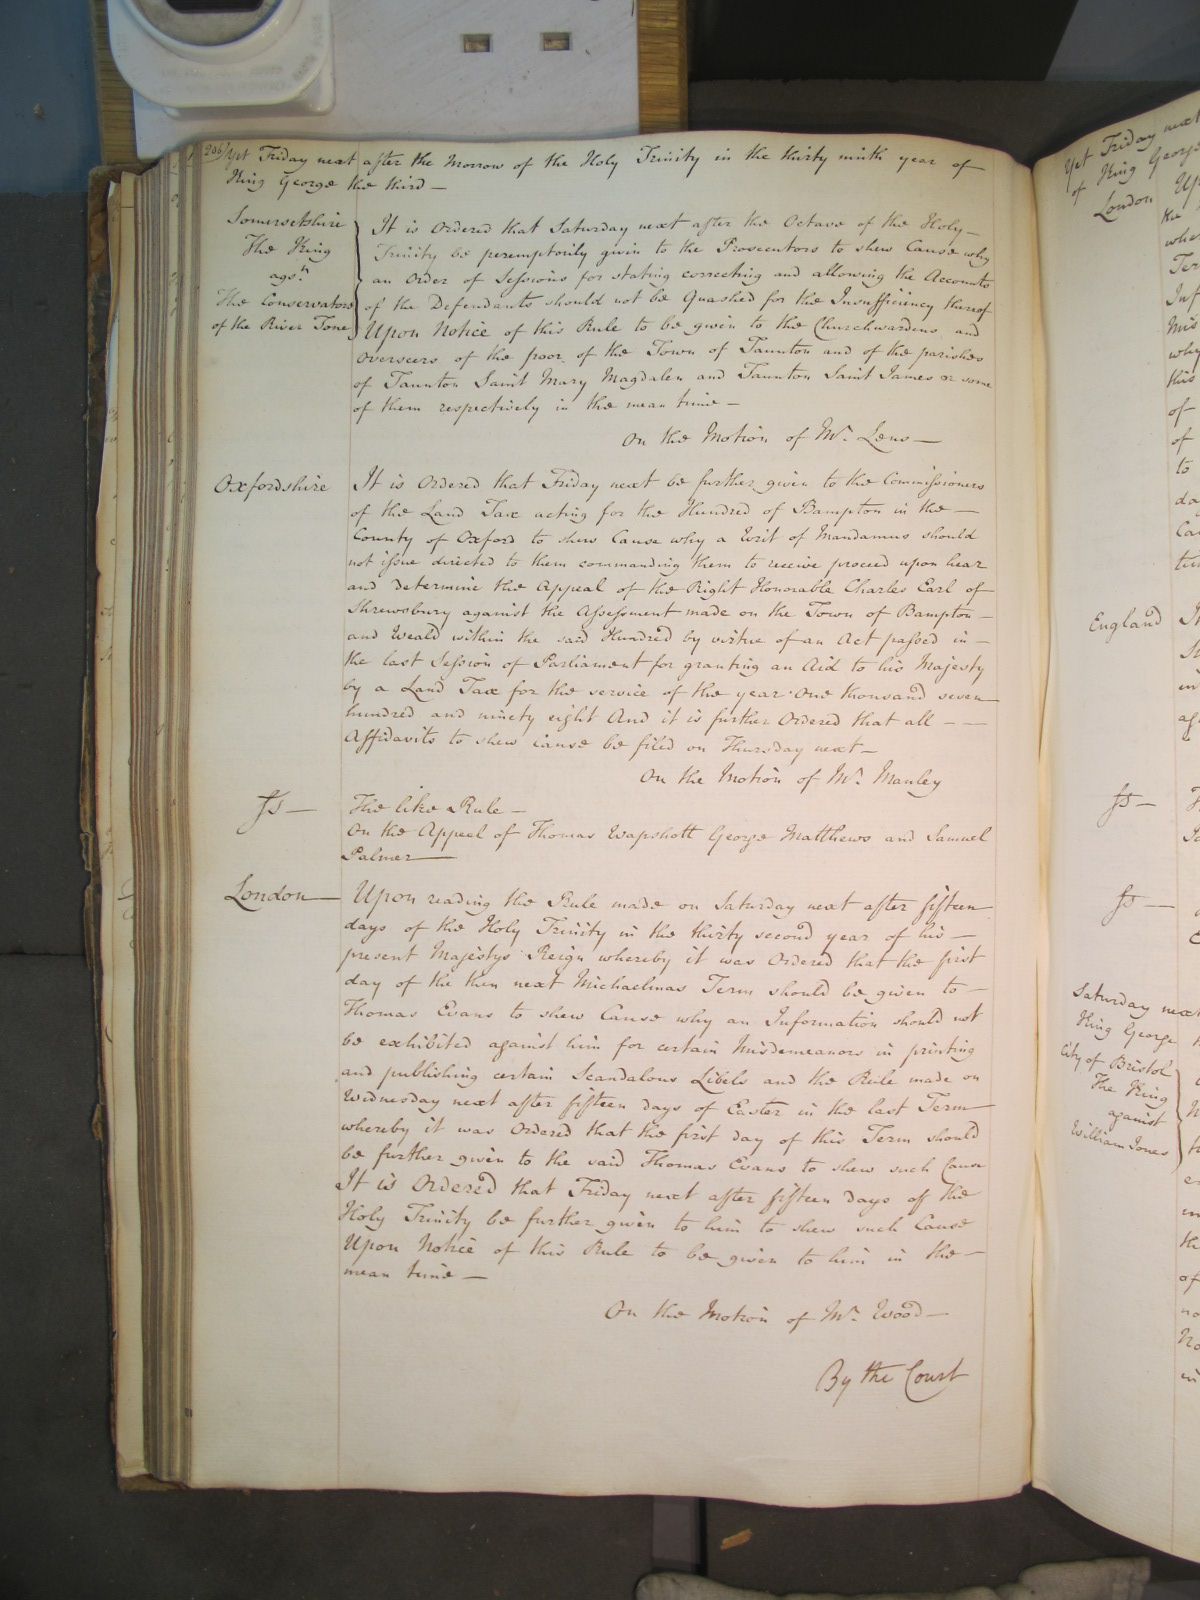 206 Yet Friday next after the Morrow of the Holy Trinity in the thirty ninth year of
King George the third —
Somersetshire
The King
agst
The Conservators
of the River Tone
It is Ordered that Saturday next after the Octave of the Holy —
Trinity be peremptorily given to the Prosecutors to shew Cause why
an Order of Sessions for stating correcting and allowing the Accounts
of the Defendants should not be Quashed for the Insufficiency thereof
Upon Notice of this Rule to be given to the Churchwardens and
Overseers of the poor of the Town of Taunton and of the parishes
of Taunton Saint Mary Magdalen and Taunton Saint James or some
of them respectively in the mean time —
On the Motion of Mr. Lens —
Oxfordshire
It is Ordered that Friday next be further given to the Commissioners
of the Land Tax acting for the Hundred of Bampton in the —
County of Oxford to shew Cause why a Writ of Mandamus should
not issue directed to them commanding them to receive proceed upon hear
and determine the Appeal of the Right Honorable Charles Earl of
Shrewsbury against the Assessment made on the Town of Bampton —
and Weald within the said Hundred by virtue of an Act passed in —
the last Session of Parliament for granting an Aid to his Majesty
by a Land Tax for the service of the year One thousand seven
hundred and ninety eight And it is further Ordered that all — —
Affidavits to shew Cause be filed on Thursday next —
On the Motion of Mr. Manley
ss —
The like Rule —
On the Appeal of Thomas Wapshott George Matthews and Samuel
Palmer —
London —
Upon reading the Rule made on Saturday next after fifteen
days of the Holy Trinity in the thirty second year of his —
present Majestys Reign whereby it was Ordered that the first
day of the then next Michaelmas Term should be given to —
Thomas Evans to shew Cause why an Information should not
be exhibited against him for certain Misdemeanors in printing
and publishing certain Scandalous Libels and the Rule made on
Wednesday next after fifteen days of Easter in the last Term
whereby it was Ordered that the first day of this Term should
be further given to the said Thomas Evans to shew such Cause
It is Ordered that Friday next after fifteen days of the
Holy Trinity be further given to him to shew such Cause
Upon Notice of this Rule to be given to him in the —
mean time —
On the Motion of Mr. Wood —
By the Court
Yet Friday next
of King George
London
England
ss —
ss —
Saturday next
King George
City of Bristol
The King
against
William Jones